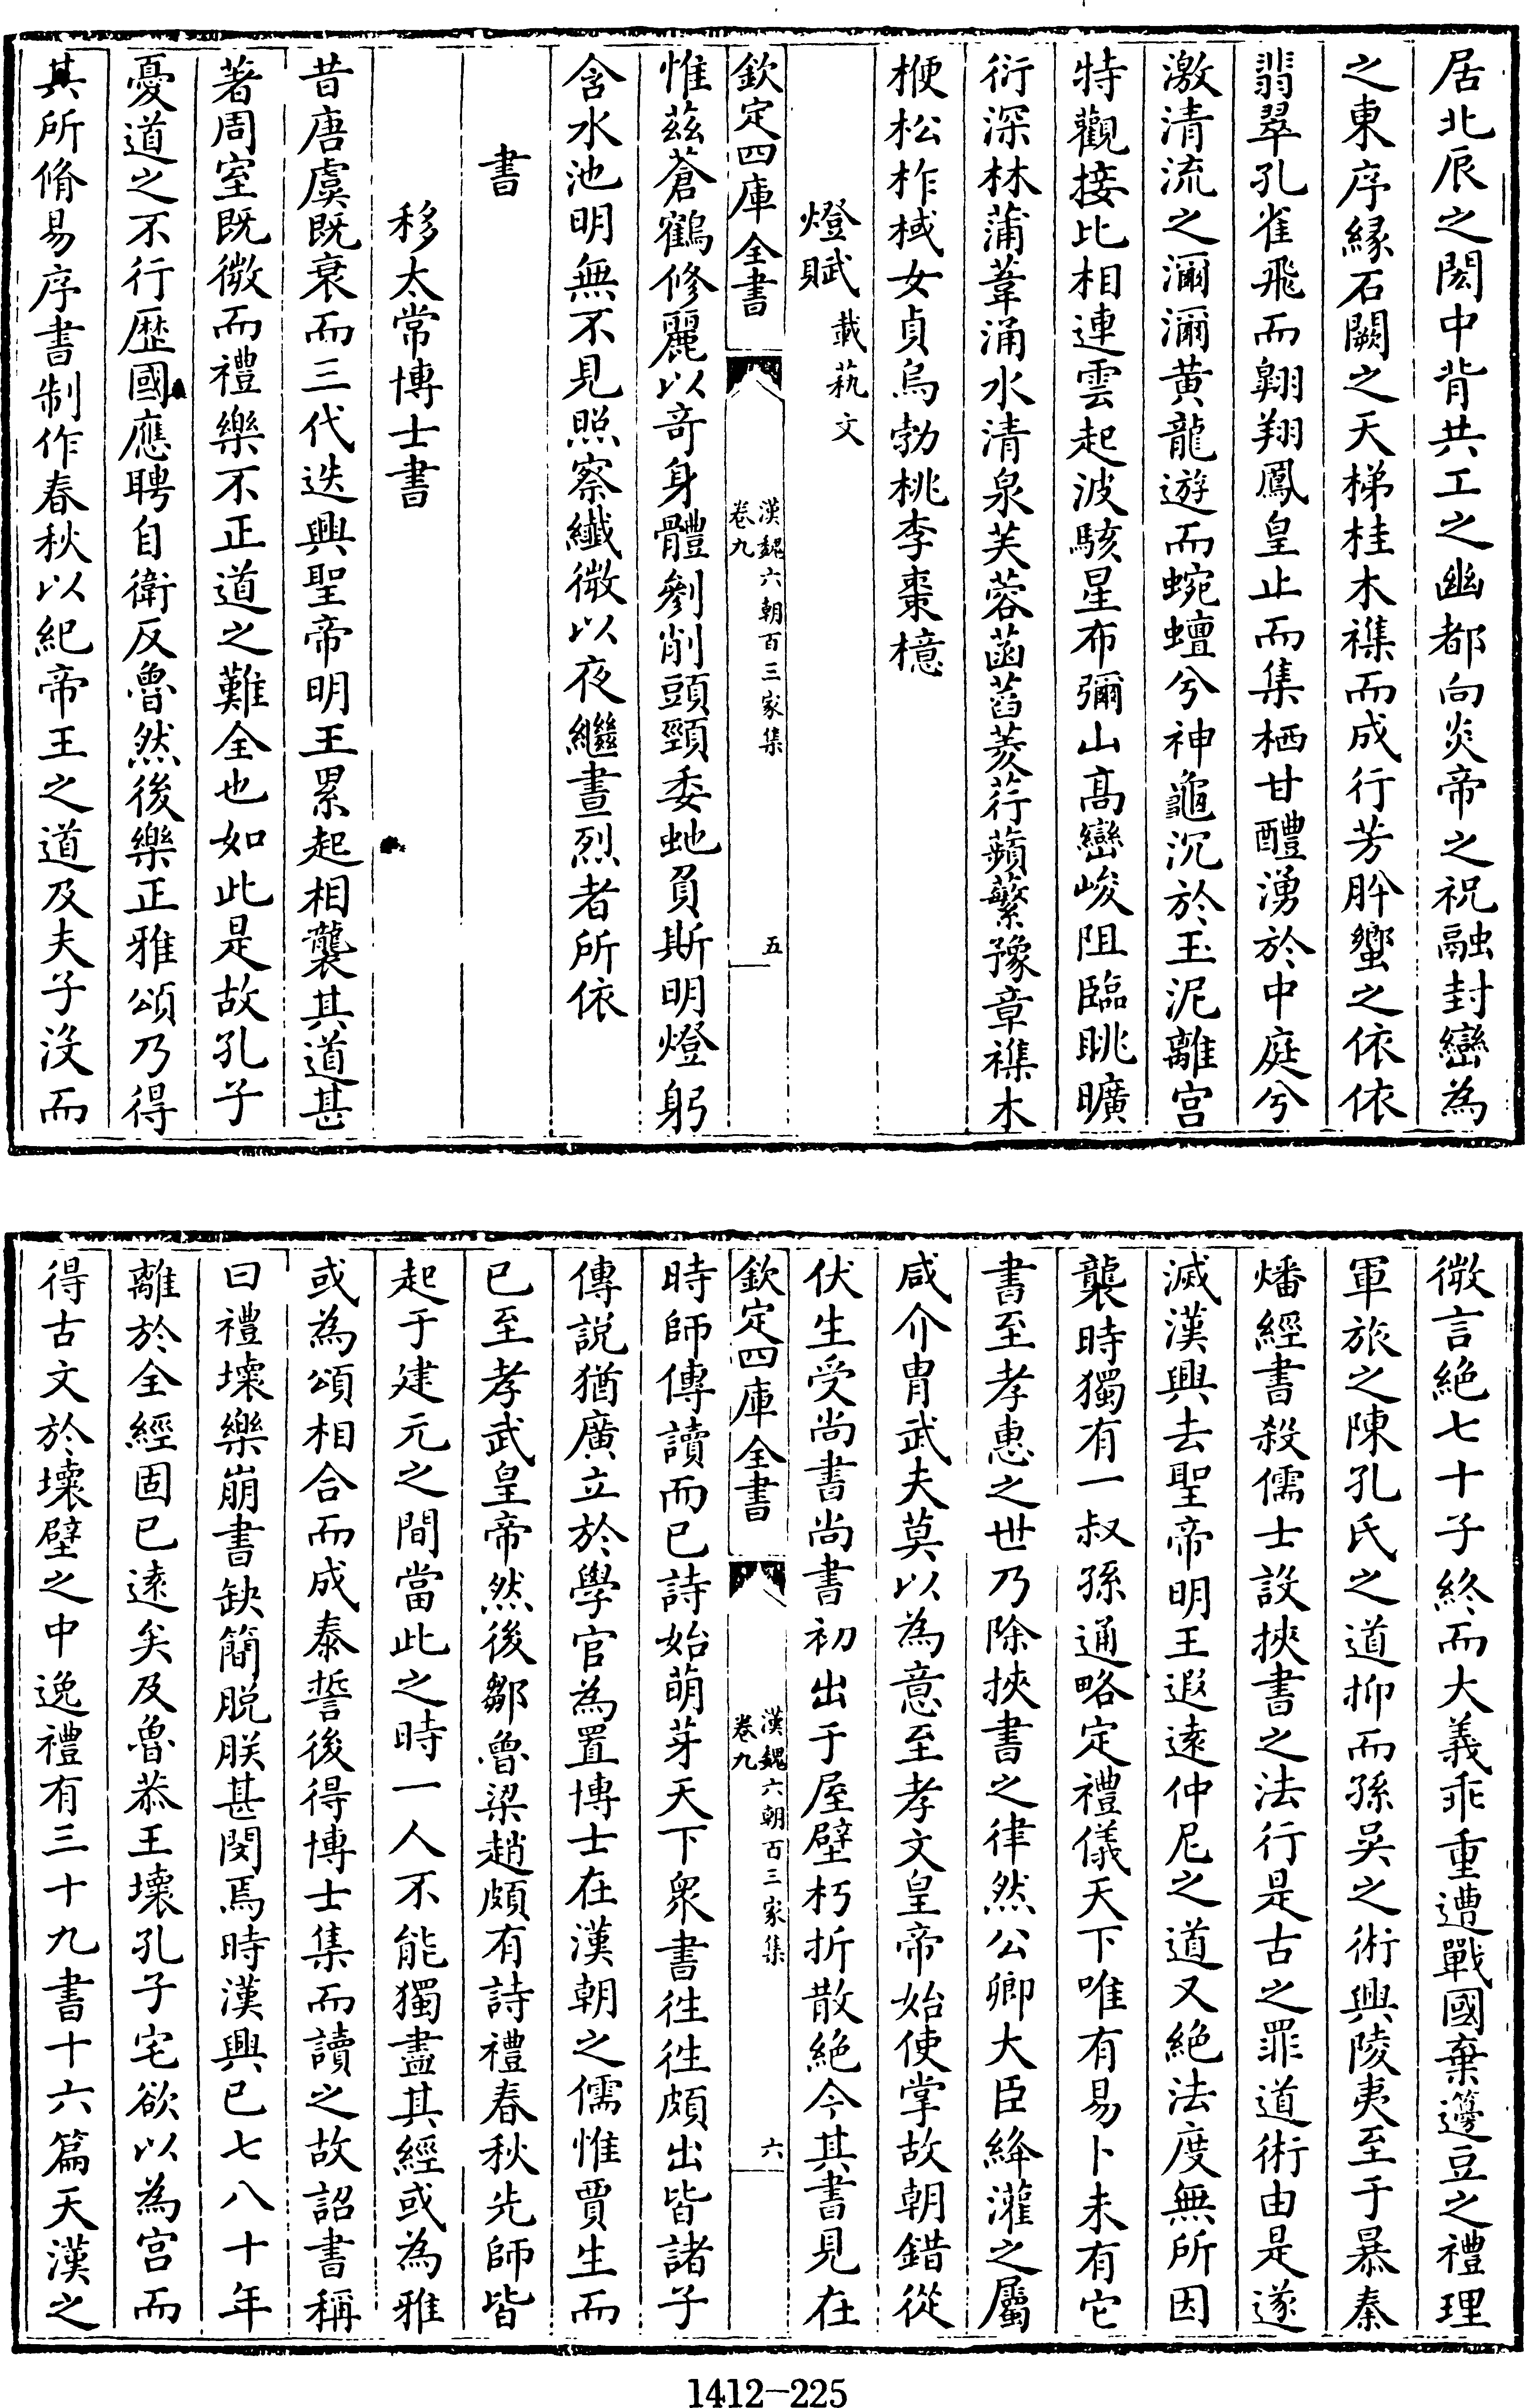 居北辰之閎中背共工之幽都向炎帝之祝融封巒為
之東序縁石闕之天梯桂木襍而成行芳肸蠁之依依
翡翠孔雀飛而翺翔鳳皇止而集栖甘醴湧於中庭兮
激清流之瀰瀰黄龍遊而蜿蟺兮神龜沉於玉泥離宫
特觀接比相連雲起波駭星布彌山髙巒峻阻臨眺曠
衍深林蒲葦涌水清泉芙蓉菡萏菱荇蘋蘩豫章襍木
楩松柞棫女貞烏勃桃李棗檍
燈賦載藝文
欽定四庫全書
漢魏六朝百三家集
卷九
五
惟茲蒼鶴修麗以竒身體剼削頭頸委虵負斯明燈躬
含水池明無不見照察纎微以夜繼晝烈者所依
書
移太常博士書
昔唐虞既衰而三代迭興聖帝明王累起相襲其道甚
著周室既微而禮樂不正道之難全也如此是故孔子
憂道之不行歴國應聘自衛反魯然後樂正雅頌乃得
其所脩易序書制作春秋以紀帝王之道及夫子没而
微言絶七十子終而大義乖重遭戰國棄籩豆之禮理
軍旅之陳孔氏之道抑而孫吳之術興陵夷至于暴秦
燔經書殺儒士設挾書之法行是古之罪道術由是遂
滅漢興去聖帝明王遐逺仲尼之道又絶法度無所因
襲時獨有一叔孫通略定禮儀天下唯有易卜未有它
書至孝惠之世乃除挾書之律然公卿大臣絳灌之屬
咸介胄武夫莫以為意至孝文皇帝始使掌故朝錯從
伏生受尚書尚書初出于屋壁朽折散絶今其書見在
欽定四庫全書
漢魏六朝百三家集
卷九
六
時師傳讀而已詩始萌芽天下衆書徃徃頗出皆諸子
傳説猶廣立於學官為置博士在漢朝之儒惟賈生而
已至孝武皇帝然後鄒魯梁趙頗有詩禮春秋先師皆
起于建元之間當此之時一人不能獨盡其經或為雅
或為頌相合而成泰誓後得博士集而讀之故詔書稱
曰禮壞樂崩書缺簡脱朕甚閔焉時漢興已七八十年
離於全經固已逺矣及魯恭王壞孔子宅欲以為宫而
得古文於壞壁之中逸禮有三十九書十六篇天漢之
1412-225